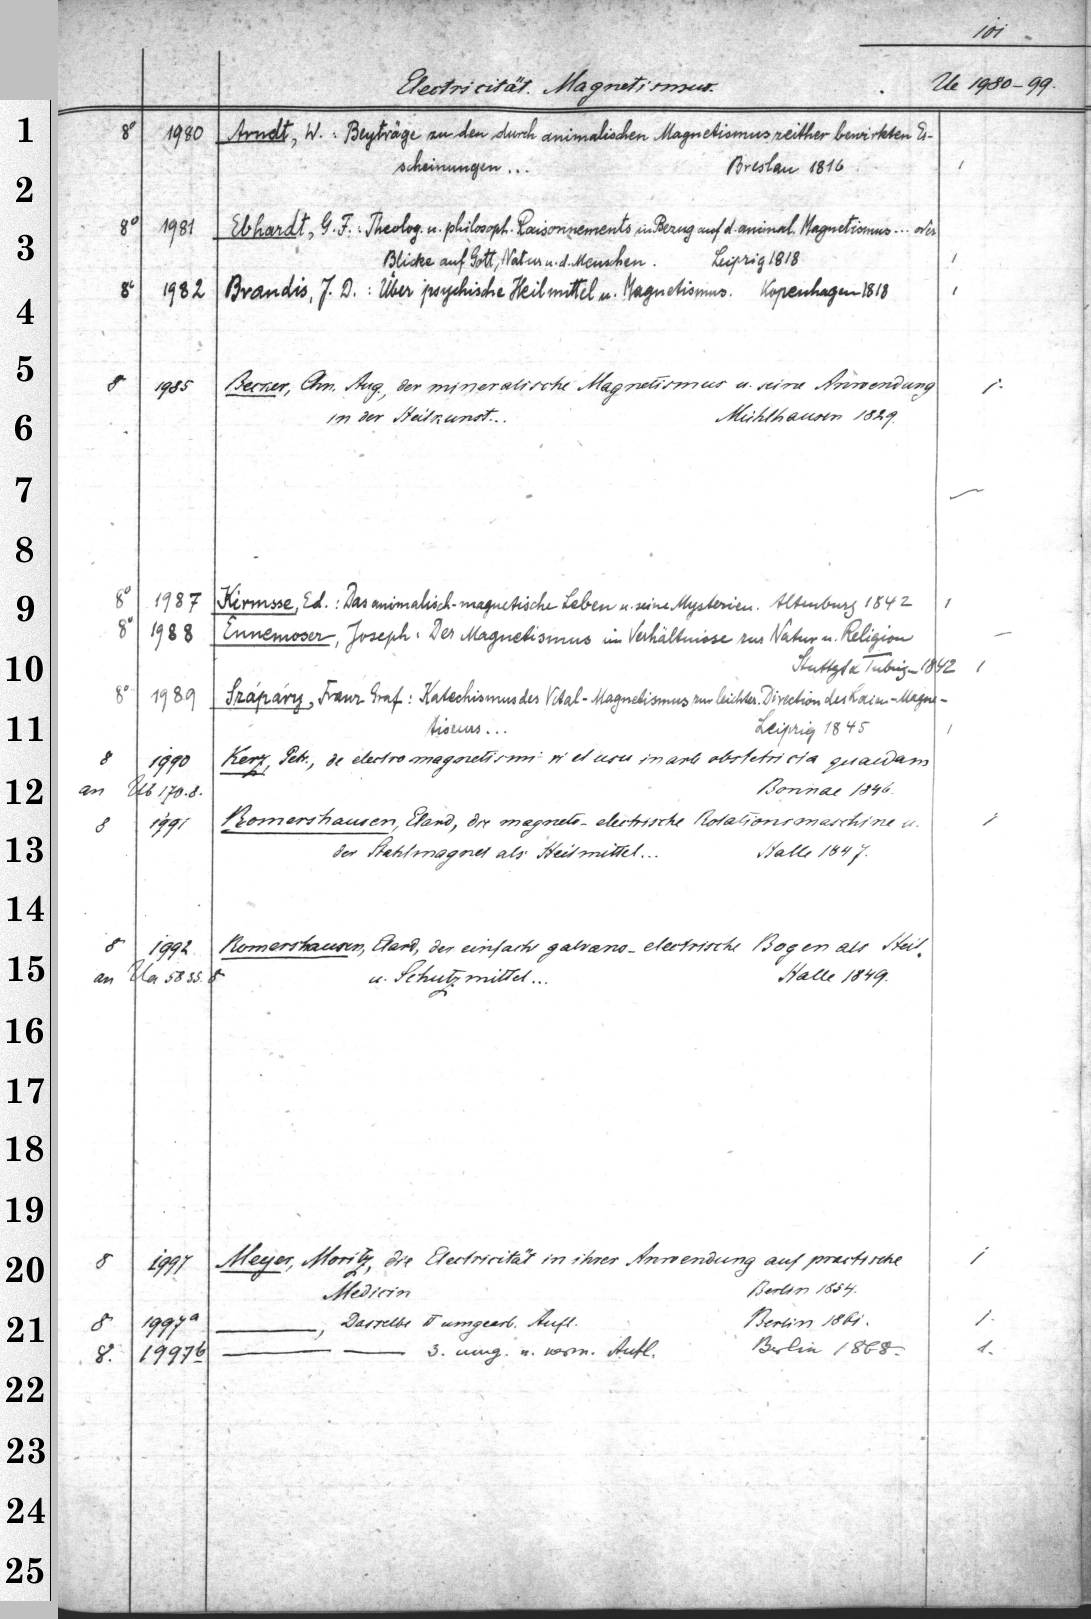 101
Electricität. Magnetismus.
Ue 1980-99.
1 8° 1980 Arndt, W. : Beyträge zu den durch animalischen Magnetismus zeither bewirkten Er-
scheinungen... Breslau 1816 1
2
8° 1981 Ebhardt, G. F. : Theolog. u. philosoph. Raisonnements in Bezug auf d. animal. Magnetismus... oder
3 Blicke auf Gott, Natur u. d. Menschen. Leipzig 1818 1
8° 1982 Brandis, J. D. : Über psychische Heilmittel u. Magnetismus. Kopenhagen 1818 1
4
5
8 1985 Becker, Chn. Aug., der mineralische Magnetismus u. seine Anwendung 1.
6 in der Heilkunst... Mühlhausen 1829.
7
8
9 8° 1987 Kirmsse, Ed. : Das animalisch-magnetische Leben u. seine Mysterien. Altenburg 1842 1
8° 1988 Ennemoser, Joseph : Der Magnetismus im Verhältnisse zur Natur u. Religion
10 Stuttg. & Tübing. 1842 1
8° 1989 Szápáry, Franz Graf : Katechismus des Vital-Magnetismus zur leichter. Direction des Laien-Magne-
11 tiseurs... Leipzig 1845 1
8 1990 Kerz, Petr., de electromagnetismi vi et usu in arte obstetricia quaedam
12 an Ub 170.8. Bonnae 1846.
8 1991 Romershausen, Elard, die magneto-electrische Rotationsmaschine u. 1
13 der Stahlmagnet als Heilmittel... Halle 1847.
14
8 1992 Romershausen, Elard, der einfache galvano-electrische Bogen als Heil-
15 an Ua 5855.8 u. Schutzmittel... Halle 1849.
16
17
18
19
20 8 1997 Meyer, Moritz, die Electricität in ihrer Anwendung auf practische 1
Medicin Berlin 1854.
21 8 1997a ———, Dasselbe II umgearb. Aufl. Berlin 1861. 1.
8. 1997b ——— —— 3. umg. u. verm. Aufl. Berlin 1868. 1.
22
23
24
25